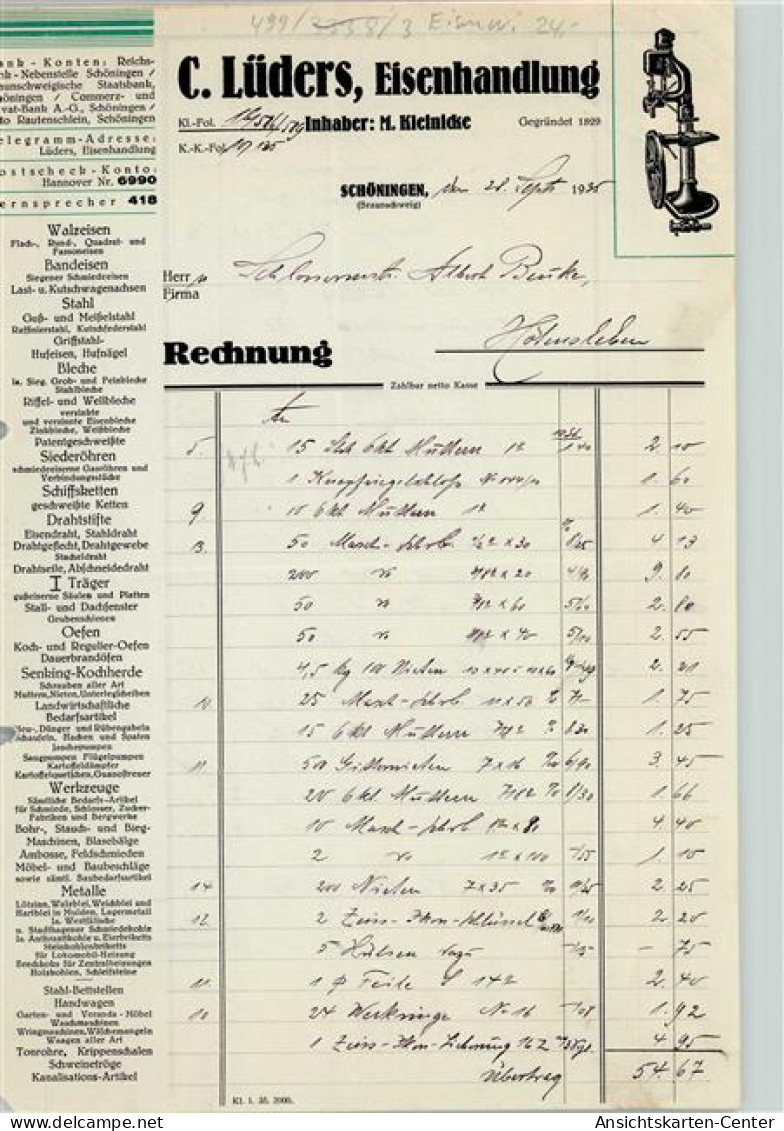 499/3558/3 Eisenw. 24,-
Bank-Konten: Reichs-
bank-Nebenstelle Schöningen /
Braunschweigische Staatsbank,
Schöningen / Commerz- und
Privat-Bank A.-G., Schöningen /
Otto Rautenschlein, Schöningen
Telegramm-Adresse:
Lüders, Eisenhandlung
Postscheck-Konto:
Hannover Nr. 6990
Fernsprecher 418
C. Lüders, Eisenhandlung
Kl.-Fol.
Inhaber: M. Kleinicke
Gegründet 1829
K.-K.-Fol.
SCHÖNINGEN, den 28. Sept. 1935
(Braunschweig)
Herr
Firma
Schlossermstr. Albert Beuke,
Hötensleben
Rechnung
Zahlbar netto Kasse
Walzeisen
Flach-, Rund-, Quadrat- und
Fassoneisen
Bandeisen
Siegener Schmiedeeisen
Last- u. Kutschwagenachsen
Stahl
Guß- und Meißelstahl
Raffinierstahl, Kutschfederstahl
Griffstahl-
Hufeisen, Hufnägel
Bleche
la. Sieg. Grob- und Feinbleche
Stahlbleche
Riffel- und Wellbleche
verzinkte
und verzinnte Eisenbleche
Zinkbleche, Weißbleche
Patentgeschweißte
Siederöhren
schmiedeeiserne Gasröhren und
Verbindungsstücke
Schiffsketten
geschweißte Ketten
Drahtstifte
Eisendraht, Stahldraht
Drahtgeflecht, Drahtgewebe
Stacheldraht
Drahtseile, Abschneidedraht
I Träger
gußeiserne Säulen und Platten
Stall- und Dachfenster
Grubenschienen
Oefen
Koch- und Regulier-Oefen
Dauerbrandöfen
Senking-Kochherde
Schrauben aller Art
Muttern, Nieten, Unterlegscheiben
Landwirtschaftliche
Bedarfsartikel
Heu-, Dünger und Rübengabeln
Schaufeln, Hacken und Spaten
Jauchepumpen
Saugpumpen Flügelpumpen
Kartoffeldämpfer
Kartoffelquetschen, Guanostreuer
Werkzeuge
Sämtliche Bedarfs-Artikel
für Schmiede, Schlosser, Zucker-
Fabriken und Bergwerke
Bohr-, Stauch- und Bieg-
Maschinen, Blasebälge
Ambosse, Feldschmieden
Möbel- und Baubeschläge
sowie sämtl. Baubedarfsartikel
Metalle
Lötzinn, Walzblei, Weichblei und
Hartblei in Mulden, Lagermetall
la. Westfälische
u. Stadthagener Schmiedekohle
la. Anthrazitkohle u. Eierbriketts
Steinkohlenbriketts
für Lokomobil-Heizung
Brechkoks für Zentralheizungen
Holzkohlen, Schleifsteine
Stahl-Bettstellen
Handwagen
Garten- und Veranda-Möbel
Waschmaschinen
Wringmaschinen, Wäschemangeln
Waagen aller Art
Tonrohre, Krippenschalen
Schweinetröge
Kanalisations-Artikel
An
5. 15 Stck 6kt Muttern 1/2 1 40 2 10
1 1. 60
9. 10 6kt Muttern 1/2 1. 40
13. 50 Masch-Schrb. x 30 8/25 4 13
200 " x 20 9. 80
50 " x 60 5/60 2. 80
50 " x 40 5/10 2. 55
4,5 Kg Nieten 2. 21
10. 25 Masch-Schrb 10 x 50 % 7/- 1. 75
15 6kt Muttern % 8.30 1. 25
11. 500 Gitternieten 7 x 16 % 6/90 3. 45
20 6kt. Muttern % 8/30 1. 66
10 Masch-Schrb 1/2 x 80 4. 40
2 " 1/2 x 100 -/55 1. 10
14. 200 Nieten 7 x 35 % 2. 25
12. 2 Zeiss-Ikon-Schlüssel 1/10 2. 20
5 Hülsen dazu -/15 - 75
11. 1 Feile 2. 40
10 24 Werkringe No 16 -/08 1. 92
1 Zeiss-Ikon-Sicherung 162 4 95
Übertrag 54. 67
Kl. 1. 35. 3000.
Ansichtskarten-Center